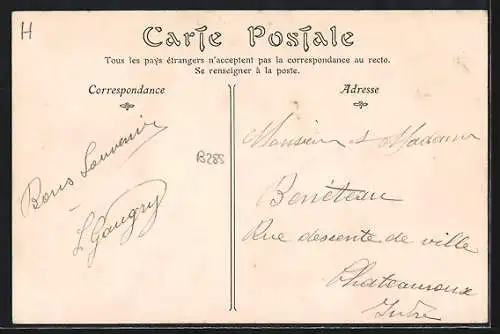 H
Carte Postale
Tous les pays étrangers n'acceptent pas la correspondance au recto.
Se renseigner à la poste.
Correspondance
Adresse
Bons Souvenir
L Gaugry
B285
Monsieur & Madame
Benéteau
Rue descente de ville
Chateauroux
Indre